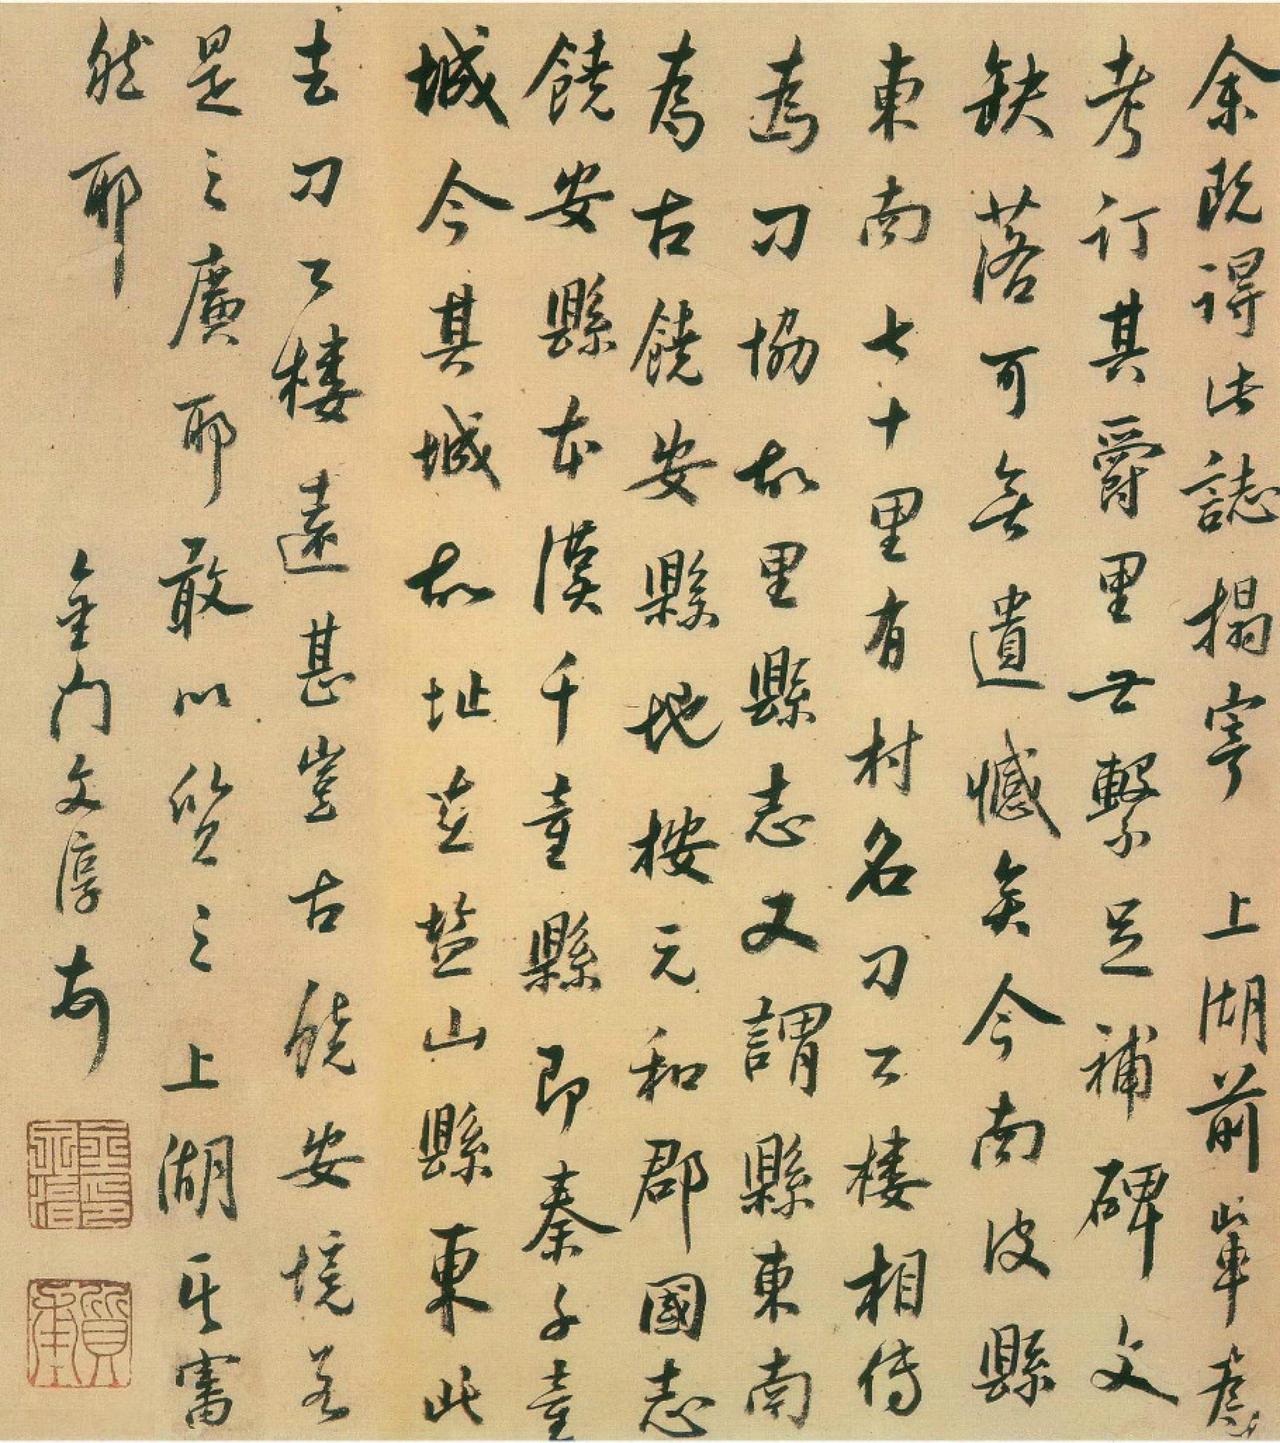 余既得此誌搨寄 上湖前輩為
考訂其爵里世繫足補碑文
缺落可無遺憾矣今南皮縣
東南七十里有村名刁公樓相傳
為刁協故里縣志又謂縣東南
為古饒安縣地按元和郡國志
饒安縣本漢千童縣即秦千童
城今其城故址在盐山縣東此
去刁公樓遠甚豈古饒安境若
是之廣耶敢以質之上湖其審
然耶
金門文淳
質甫